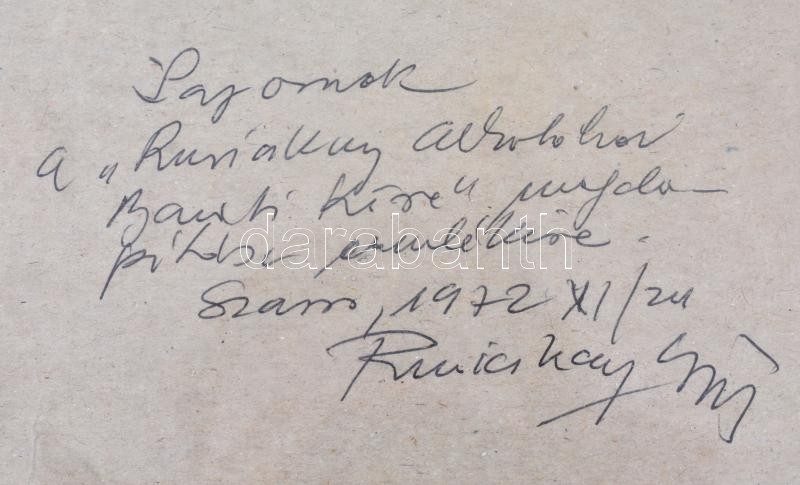 Sajónak
a „Ruzicskay Alkotóház
Baráti Köre" megala-
pítása emlékére.
Szarvas, 1972 XI/24
Ruzicskay Gy
darabanth